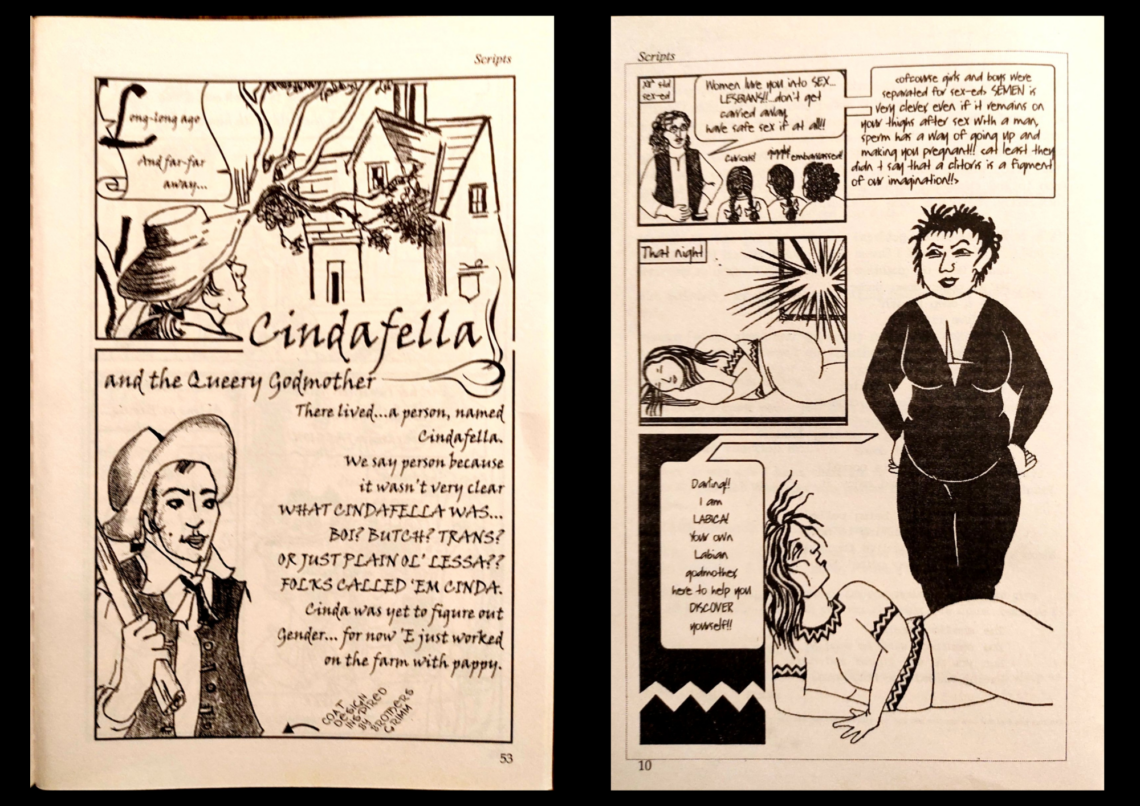 Scripts
Long-long ago
And far-far
away...
Cindafella
and the Queery Godmother
There lived...a person, named
Cindafella.
We say person because
it wasn't very clear
WHAT CINDAFELLA WAS...
BOI? BUTCH? TRANS?
OR JUST PLAIN OL' LESSA??
FOLKS CALLED 'EM CINDA.
Cinda was yet to figure out
Gender... for now 'E just worked
on the farm with pappy.
COAT
DESIGN
INSPIRED
BY
BROTHERS
GRIMM
53
Scripts
std
sex-ed
Women lure you into SEX...
LESBIANS!!..don't get
carried away,
have safe sex if at all!!
curious!
giggle!
embarrassed!
cofcourse girls and boys were
separated for sex-ed. SEMEN is
very clever even if it remains on
your thighs after sex with a man,
sperm has a way of going up and
making you pregnant!! cat least they
didn t say that a clitoris is a figment
of our imagination!!>
That night
Darling!!
I am
LABICA!
Your own
Labian
godmother,
here to help you
DISCOVER
yourself!!
10